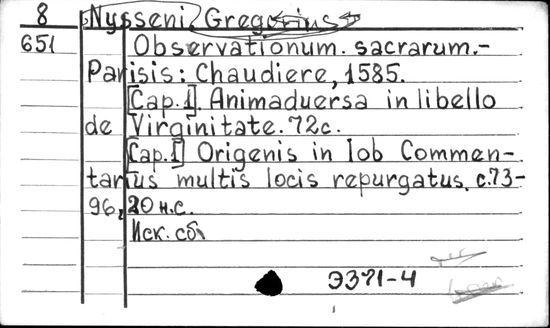 8 Nysseni Gregorius
651 Observationum. sacrarum.-
Parisis: Chaudiere, 1585.
[Cap.1]. Animaduersa in libello
de Virginitate. 72c.
[Cap.1] Origenis in Iob Commen-
tarius multis locis repurgatus. c.73-
96, 20 н.с.
Иск. сб.
Э371-4